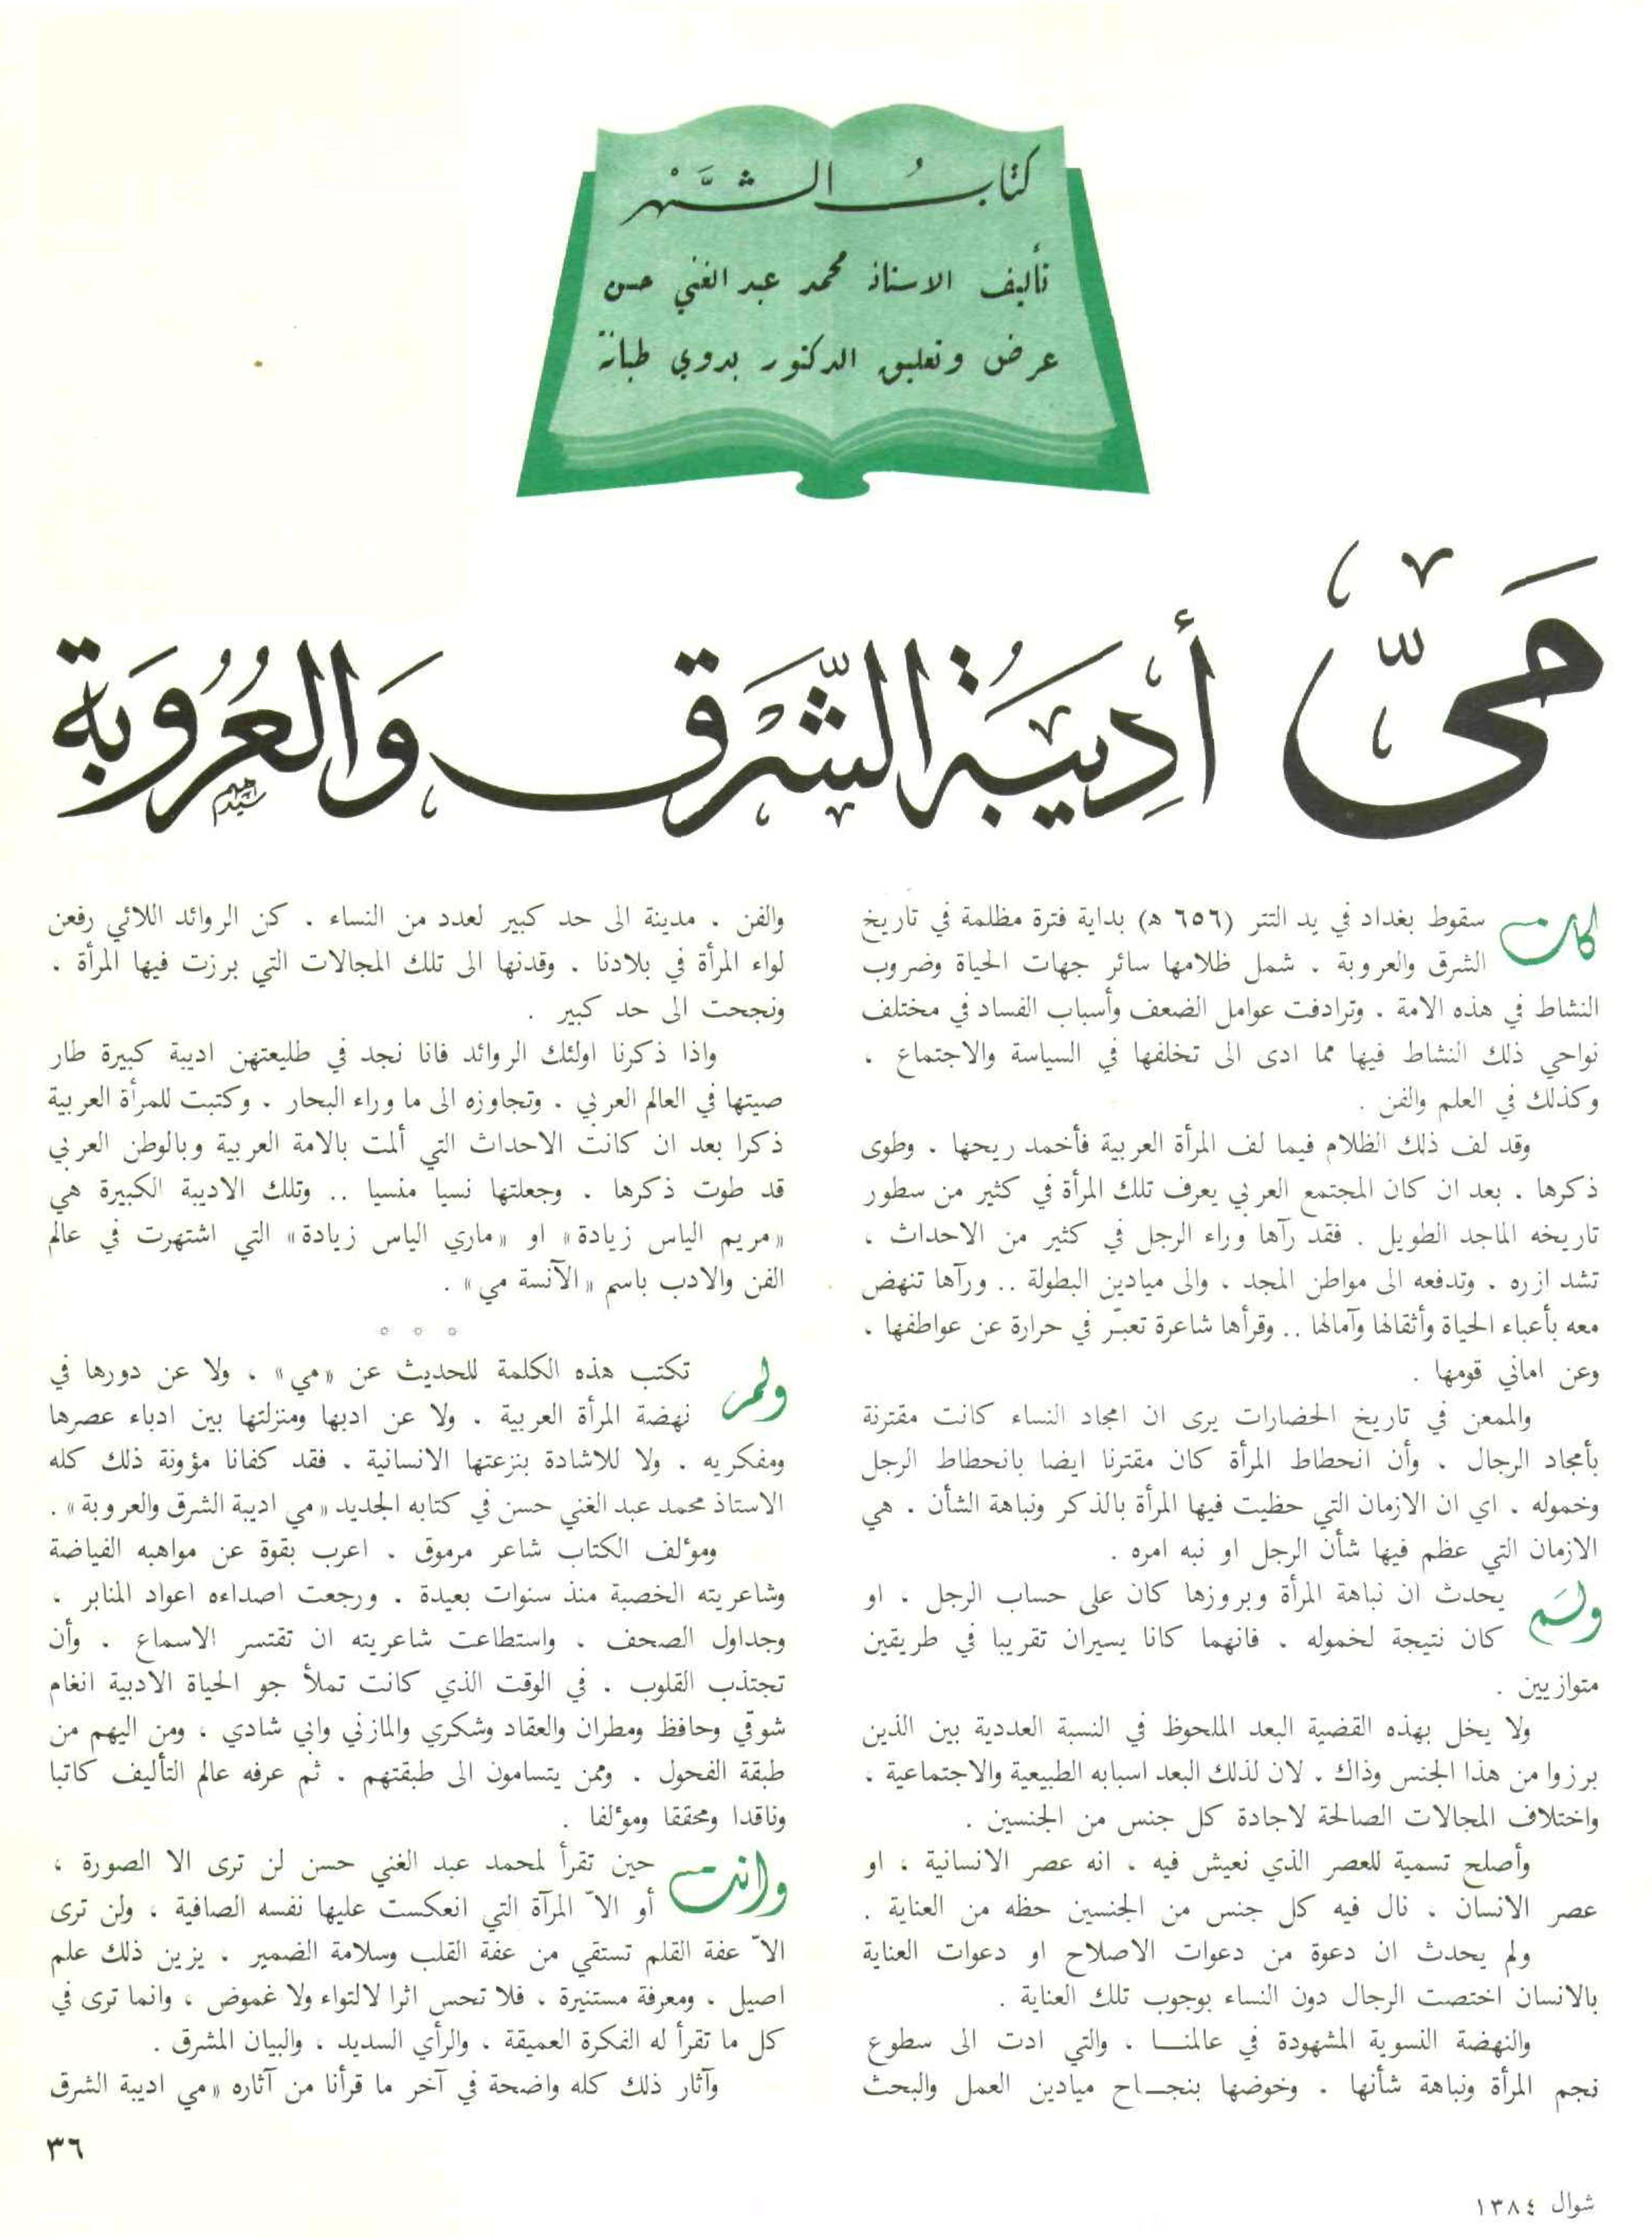 كتاب الشهر
تأليف الاستاذ محمد عبد الغني حسن
عرض وتعليق الدكتور بدوي طبانة
مَيّ أديبة الشَّرق وَالعُرُوبَة
كان سقوط بغداد في يد التتر (٦٥٦ ه) بداية فترة مظلمة في تاريخ
الشرق والعروبة . شمل ظلامها سائر جهات الحياة وضروب
النشاط في هذه الامة . وترادفت عوامل الضعف وأسباب الفساد في مختلف
نواحي ذلك النشاط فيها مما ادى الى تخلفها في السياسة والاجتماع ،
وكذلك في العلم والفن .
وقد لف ذلك الظلام فيما لف المرأة العربية فأخمد ريحها . وطوى
ذكرها . بعد ان كان المجتمع العربي يعرف تلك المرأة في كثير من سطور
تاريخه الماجد الطويل . فقد رآها وراء الرجل في كثير من الاحداث ،
تشد ازره . وتدفعه الى مواطن المجد ، والى ميادين البطولة .. ورآها تنهض
معه بأعباء الحياة وأثقالها وآمالها .. وقرأها شاعرة تعبّر في حرارة عن عواطفها ،
وعن اماني قومها .
والممعن في تاريخ الحضارات يرى ان امجاد النساء كانت مقترنة
بأمجاد الرجال . وأن انحطاط المرأة كان مقترنا ايضا بانحطاط الرجل
وخموله . اي ان الازمان التي حظيت فيها المرأة بالذكر ونباهة الشأن . هي
الازمان التي عظم فيها شأن الرجل او نبه امره .
ولم يحدث ان نباهة المرأة وبروزها كان على حساب الرجل ، او
كان نتيجة لخموله . فانهما كانا يسيران تقريبا في طريقين
متوازيين .
ولا يخل بهذه القضية البعد الملحوظ في النسبة العددية بين الذين
برزوا من هذا الجنس وذاك . لان لذلك البعد اسبابه الطبيعية والاجتماعية ،
واختلاف المجالات الصالحة لاجادة كل جنس من الجنسين .
وأصلح تسمية للعصر الذي نعيش فيه ، انه عصر الانسانية ، او
عصر الانسان ، نال فيه كل جنس من الجنسين حظه من العناية .
ولم يحدث ان دعوة من دعوات الاصلاح او دعوات العناية
بالانسان اختصت الرجال دون النساء بوجوب تلك العناية .
والنهضة النسوية المشهودة في عالمنا ، والتي ادت الى سطوع
نجم المرأة ونباهة شأنها . وخوضها بنجاح ميادين العمل والبحث
والفن . مدينة الى حد كبير لعدد من النساء . كن الروائد اللائي رفعن
لواء المرأة في بلادنا . وقدنها الى تلك المجالات التي برزت فيها المرأة .
ونجحت الى حد كبير .
واذا ذكرنا اولئك الروائد فانا نجد في طليعتهن اديبة كبيرة طار
صيتها في العالم العربي . وتجاوزه الى ما وراء البحار . وكتبت للمرأة العربية
ذكرا بعد ان كانت الاحداث التي ألمت بالامة العربية وبالوطن العربي
قد طوت ذكرها . وجعلتها نسيا منسيا .. وتلك الاديبة الكبيرة هي
«مريم الياس زيادة» او «ماري الياس زيادة» التي اشتهرت في عالم
الفن والادب باسم «الآنسة مي» .
° ° °
ولم تكتب هذه الكلمة للحديث عن «مي» ، ولا عن دورها في
نهضة المرأة العربية . ولا عن ادبها ومنزلتها بين ادباء عصرها
ومفكريه . ولا للاشادة بنزعتها الانسانية . فقد كفانا مؤونة ذلك كله
الاستاذ محمد عبد الغني حسن في كتابه الجديد «مي اديبة الشرق والعروبة» .
ومؤلف الكتاب شاعر مرموق . اعرب بقوة عن مواهبه الفياضة
وشاعريته الخصبة منذ سنوات بعيدة . ورجعت اصداءه اعواد المنابر ،
وجداول الصحف ، واستطاعت شاعريته ان تقتسر الاسماع . وأن
تجتذب القلوب . في الوقت الذي كانت تملأ جو الحياة الادبية انغام
شوقي وحافظ ومطران والعقاد وشكري والمازني وابي شادي ، ومن اليهم من
طبقة الفحول . وممن يتسامون الى طبقتهم . ثم عرفه عالم التأليف كاتبا
وناقدا ومحققا ومؤلفا .
وانت حين تقرأ لمحمد عبد الغني حسن لن ترى الا الصورة ،
أو الاّ المرآة التي انعكست عليها نفسه الصافية ، ولن ترى
الاّ عفة القلم تستقي من عفة القلب وسلامة الضمير ، يزين ذلك علم
اصيل ، ومعرفة مستنيرة ، فلا تحس اثرا لالتواء ولا غموض ، وانما ترى في
كل ما تقرأ له الفكرة العميقة ، والرأي السديد ، والبيان المشرق .
وآثار ذلك كله واضحة في آخر ما قرأنا من آثاره «مي اديبة الشرق
٣٦
شوال ١٣٨٤